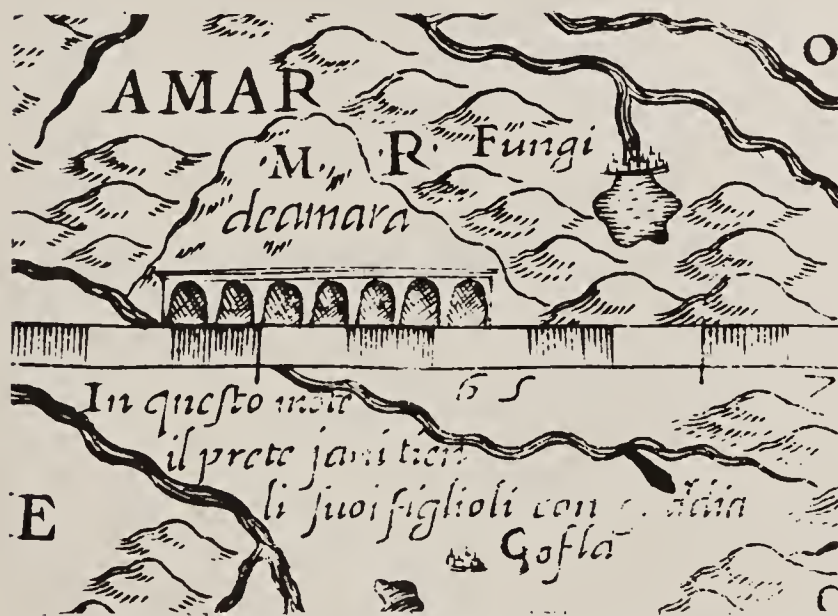 O
AMAR
·M· ·R· Fungi
deamara
65 7
In questo mote
il prete jani tien
li suoi figlioli con
E
Gosla